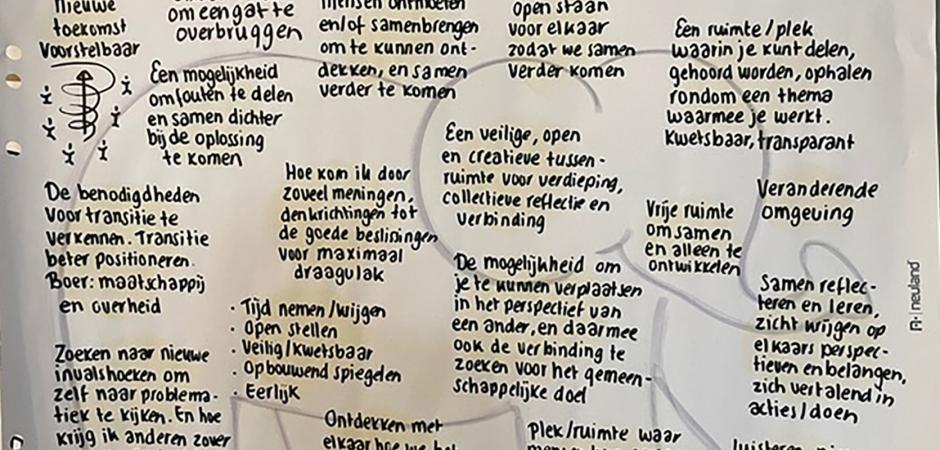 nieuwe
toekomst
Voorstelbaar
om een gat te
overbruggen
mensen ontmoeten
en/of samenbrengen
om te kunnen ont-
dekken, en samen
verder te komen
open staan
voor elkaar
zodat we samen
verder komen
Een ruimte/plek
waarin je kunt delen,
gehoord worden, ophalen
rondom een thema
waarmee je werkt.
Kwetsbaar, transparant
Een mogelijkheid
om fouten te delen
en samen dichter
bij de oplossing
te komen
Een veilige, open
en creatieve tussen-
ruimte voor verdieping,
collectieve reflectie en
verbinding
De benodigdheden
voor transitie te
verkennen. Transitie
beter positioneren.
Boer: maatschappij
en overheid
Hoe kom ik door
zoveel meningen,
denkrichtingen tot
de goede beslissingen
voor maximaal
draagvlak
Vrije ruimte
om samen
en alleen te
ontwikkelen
Veranderende
omgeving
De mogelijkheid om
je te kunnen verplaatsen
in het perspectief van
een ander, en daarmee
ook de verbinding te
zoeken voor het gemeen-
schappelijke doel
Samen reflec-
teren en leren,
zicht krijgen op
elkaars perspec-
tieven en belangen,
zich vertalend in
acties/doen
· Tijd nemen/krijgen
· Open stellen
· Veilig/kwetsbaar
· Opbouwend spiegelen
· Eerlijk
Zoeken naar nieuwe
invalshoeken om
zelf naar problema-
tiek te kijken. En hoe
krijg ik anderen zover
Ontdekken met
elkaar hoe we het
Plek/ruimte waar
luisteren
neuland